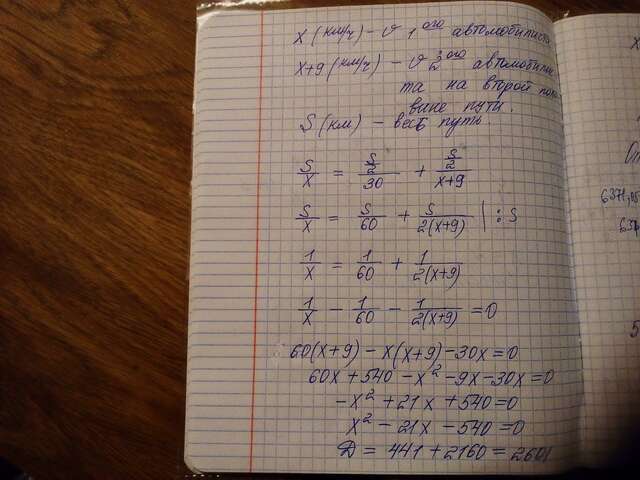 x (км/ч) – v 1 ого автомобилиста
x+9 (км/ч) – v 2 ого автомобилис
та на второй поло
вине пути.
S (км) – весь путь
S/x = (S/2)/30 + (S/2)/(x+9)
S/x = S/60 + S/(2(x+9)) | : S
1/x = 1/60 + 1/(2(x+9))
1/x – 1/60 – 1/(2(x+9)) = 0
60(x+9) – x(x+9) – 30x = 0
60x + 540 – x² – 9x – 30x = 0
–x² + 21x + 540 = 0
x² – 21x – 540 = 0
D = 441 + 2160 = 2601